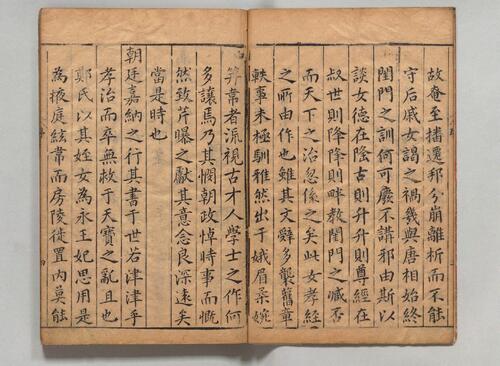 故奄至播遷邦分崩離析而不能
守后戚女謁之禍幾與唐相始終
閨門之訓何可廢不講邪由斯以
談女德在陰古則升升則尊經在
叔世則降降則畔教閨門之臧否
而天下之治忽係之矣此女孝經
之所由作也雖其文辭多襲舊章
軼事未極馴雅然出于娥眉柔婉
者流視古才人學士之作何
多讓焉乃其憫朝政悼時事而慨
然致芹曝之獻其意念良深遠矣
當是時也
朝廷嘉納之行其書于世若津津乎
孝治而卒無救于天寶之亂且也
鄭氏以其姪女為永王妃思用是
為掖庭絃而房陵徙置內莫能